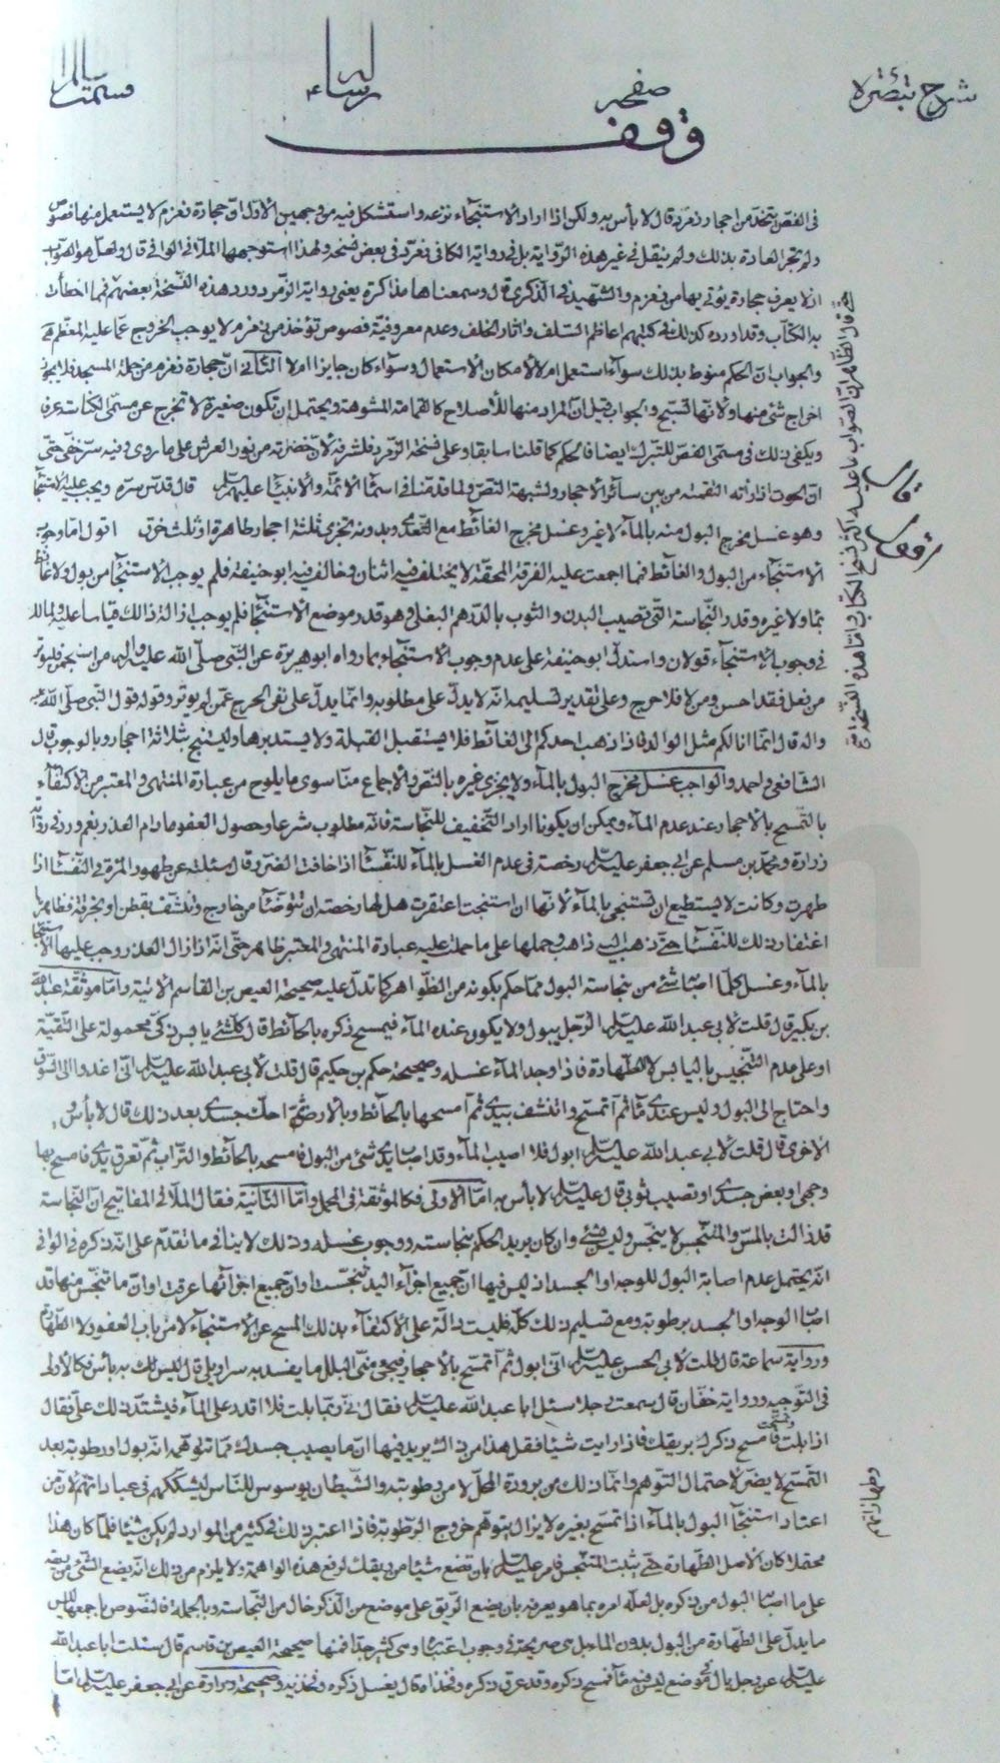 شرح تبصرة
صفحه
وقف
في الفصّ يتخذ من احجار زمرد قال لا بأس به ولكن اذا اراد الاستنجاء نزعه واستشكل فيه من وجهين الاول انّ حجارة زمزم لا يستعمل منها فصوص
ولم تجر العادة بذلك ولم ينقل في غير هذه الرواية بل في رواية الكافي زمرّد في بعض نسخه ولهذا استوجهها الملّا في الوافي قال ولعلّه هو الصواب
اذ لا يعرف حجارة يؤتى بها من زمزم والشهيد في الذكرى قال وسمعنا مذاكرة يعني رواية الزمرد ورد هذه النسخة بعضهم
به الكتاب وقد اورده كذلك في كتبهم اعاظم السّلف واثار الخلف وعدم معروفيّة فصوص تؤخذ من زمزم لا يوجب الخروج عمّا عليه المعظم
والجواب انّ الحكم منوط بذلك سوآء استعمل ام لا لامكان الاستعمال وسوآء كان جايزا ام لا الثاني انّ حجارة زمزم من جملة المسجد فلا يجوز
اخراج شئ منها ولانّها تسبّح والجواب قيل انّ المراد منها للاصلاح كالقمامة المشوهة ويحتمل ان تكون صغيرة لا تخرج عن مسمّى الكناسة عرفا
ويكفي ذلك في مسمّى الفصّ للتبرك ايضا فالحكم كما قلنا سابقا وعلى نسخة الزّمرد فلشرفه لانّ خضرته من نور العرش على ما روى وفيه سرّ خفى حتى
انّ الحوت اذا رأته التقمته من بين سائر الاحجار ولشبهة النصّ ولما قدمنا في اسماء الائمّة والانبياء عليهم السلم قال قدس سره ويجب عليه الاستنجاء
وهو غسل مخرج البول منه بالمآء لا غير وغسل مخرج الغائط مع التعدّى وبدونه يجزى ثلثة احجار طاهرة او ثلث خرق اقول امّا وجوب
الاستنجآء من البول والغآئط فمما اجمعت عليه الفرقة المحقة لا يختلف فيه اثنان وخالف فيه ابو حنيفة فلم يوجب الاستنجاء من بول ولا غائط
بماء ولا غيره وقدر النّجاسة الّتى تصيب البدن والثوب بالدّرهم البغلى وهو قدر موضع الاستنجاء فلم يوجب ازالة ذالك قياسا عليه ولمالك
في وجوب الاستنجآء قولان واستدلّ ابو حنيفة على عدم وجوب الاستنجآء بما رواه ابو هريرة عن النّبى صلّى الله عليه واله من استجمر فليوتر
من فعل فقد احسن ومن لا فلا حرج وعلى تقدير تسليمه انه لا يدلّ على مطلوبه وانّما يدلّ على نفى الحرج عمّن لم يوتر وقوله قول النّبى صلى الله عليه
واله قال انّما انا لكم مثل الوالد فاذا ذهب احدكم الى الغائط فلا يستقبل القبلة ولا يستدبرها وليستنج بثلاثة احجار وبالوجوب قال
الشافعى واحمد والواجب غسل مخرج البول بالمآء ولا يجزى غيره بالنصّ والاجماع منّا سوى ما يلوح من عبارة المنتهى والمعتبر من الاكتفآء
بالتمسّح بالاحجار عند عدم المآء ويمكن ان يكونا ارادا التّخفيف للنّجاسة فانه مطلوب شرعا وحصول العفو مادام العذر نعم ورد في رواية
زرارة ومحمد بن مسلم عن ابي جعفر عليه السلم رخصة في عدم الغسل بالمآء للنّفساء اذا خافت الضرر قال سئلته عن طهور المرئة في النّفساء اذا
طهرت وكانت لا يستطيع ان تستنجى بالمآء لانّها ان استنجت اعتقرت هل لها رخصة ان تتوضّأ من خارج وتنشّف بقطن او بخرقة
اغتفار ذلك للنّفساء وحملها على ما حملت عليه عبارة المنتهى والمعتبر ظاهر حتّى انّه اذا زال العذر وجب عليها الاستنجاء
بالمآء وغسل كلّما اصابه شئ من نجاسة البول ممّا حكم بكونه من الظّواهر كما تدلّ عليه صحيحة العيص بن القاسم الاتية وامّا موثّقة عبد الله
بن بكير قال قلت لابى عبد الله عليه السلم الرّجل يبول ولا يكون عنده المآء فيمسح ذكره بالحآئط قال كلّ شئ يابس ذكىّ محمولة على التّقيّة
او على عدم التّنجيس باليابس لا الطّهارة فاذا وجد المآء غسله وصحيحة حكم بن حكيم قال قلت لابى عبد الله عليه السلم انّى اغدو الى السّوق
واحتاج الى البول وليس عندى مآء ثم اتمسّح واتنشف بيدى ثم امسحها بالحائط وبالارض ثم احكّ جسدى بعد ذلك قال لا بأس و
الاخرى قال قلت لابى عبد الله عليه السلم ابول فلا اصيب المآء وقد اصاب يدى شئ من البول فامسحه بالحآئط والتّراب ثم تعرق يدى فامسح بها
وجهى او بعض جسدى او تصيب ثوبى قال عليه السلم لا بأس به امّا الاولى فكالموثقة في المحمل وامّا الثانية فقال الملّا في المفاتيح انّ النّجاسة
قد زالت بالمسّ والمتنجّس لا ينجّس وليس بشئ وان كان يريد الحكم بنجاسته ووجوب غسله وذلك لا ينافى ما تقدّم على انّه ذكره في الوافى
انّه يحتمل عدم اصابة البول للوجه او الجسد اذ ليس فيها انّ جميع اجزآء اليد تنجّست او انّ جميع اجزآئها عرقت او انّ ما تنجّس منها قد
اصاب الوجه او الجسد برطوبة ومع تسليم ذلك كلّه فليست دالّة على الاكتفآء بذلك المسح عن الاستنجآء الا من باب العفو لا الطّهارة
ورواية سماعة قال قلت لابى الحسن عليه السلم انّى ابول ثم اتمسّح بالاحجار فيجئ منّى البلل ما يفسد به سراويلى قال ليس به بأس فكالاولى
في التّوجيه ورواية حنّان قال سمعت رجلا سئل ابا عبد الله عليه السلم فقال انّى ربّما بلت فلا اقدر على المآء فيشتدّ ذلك علىّ فقال
اذا بلت وتمسّحت فامسح ذكرك بريقك فاذا رايت شيئا فقل هذا من ذاك يريد فيها انّ ما يصيب جسدك ممّا تتوهّمه انّه بول او رطوبة بعد
التمسّح لا يضرّ لاحتمال التّوهم وانّما ذلك من برودة المحلّ لا من رطوبته والشّيطان يوسوس للنّاس ليشكّكهم في عباداتهم لانّ من
اعتاد استنجاء البول بالمآء اذا تمسّح بغيره لا يزال يتوهّم خروج الرّطوبة فاذا اعتبر ذلك في كثير من الموارد لم يكن شيئا فلمّا كان هذا
محتملا كان الاصل الطّهارة حتى يثبت المتنجّس فامر عليه السلم بان تضع شيئا من ريقك لرفع هذه الواهمة ولا يلزم من ذلك انّه يضع الشّئ من ريقه
على ما اصابه البول من ذكره بل لعلّه امره بما هو يعرفه بان يضع الرّيق على موضع من الذّكر خال من النّجاسة وبالجملة فالنّصوص باجمعها ليس
ما يدلّ على الطّهارة من البول بدون المآء بل هى صريحة في وجوب اعتباره وهى كثيرة جدّا فمنها صحيحة العيص بن قاسم قال سئلت ابا عبد الله
عليه السلم عن رجل بال في موضع ليس فيه مآء فمسح ذكره وقد عرق ذكره وفخذاه قال يغسل ذكره وفخذيه وصحيحة زرارة عن ابى جعفر عليه السلم امّا